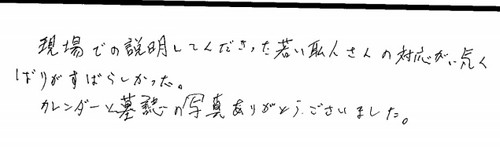 現場での説明してくださった若い職人さんの対応がい気く
ばりがすばらしかった。
カレンダーと墓誌の写真ありがとうございました。